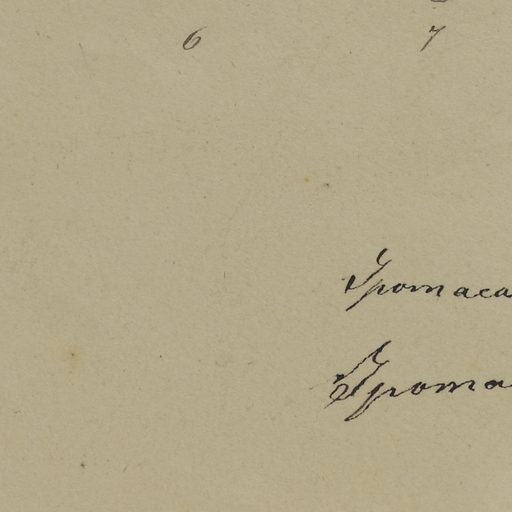 6 7
Ipomaca
Ipoma